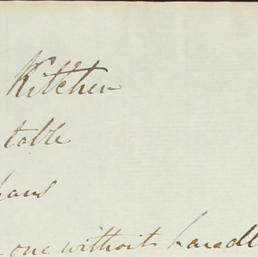 Kitchen
table
one without handl